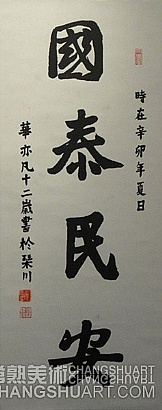 國泰民安
時在辛卯年夏日
華亦凡十二歲書於琴川
常熟美術
CHANGSHUART.COM